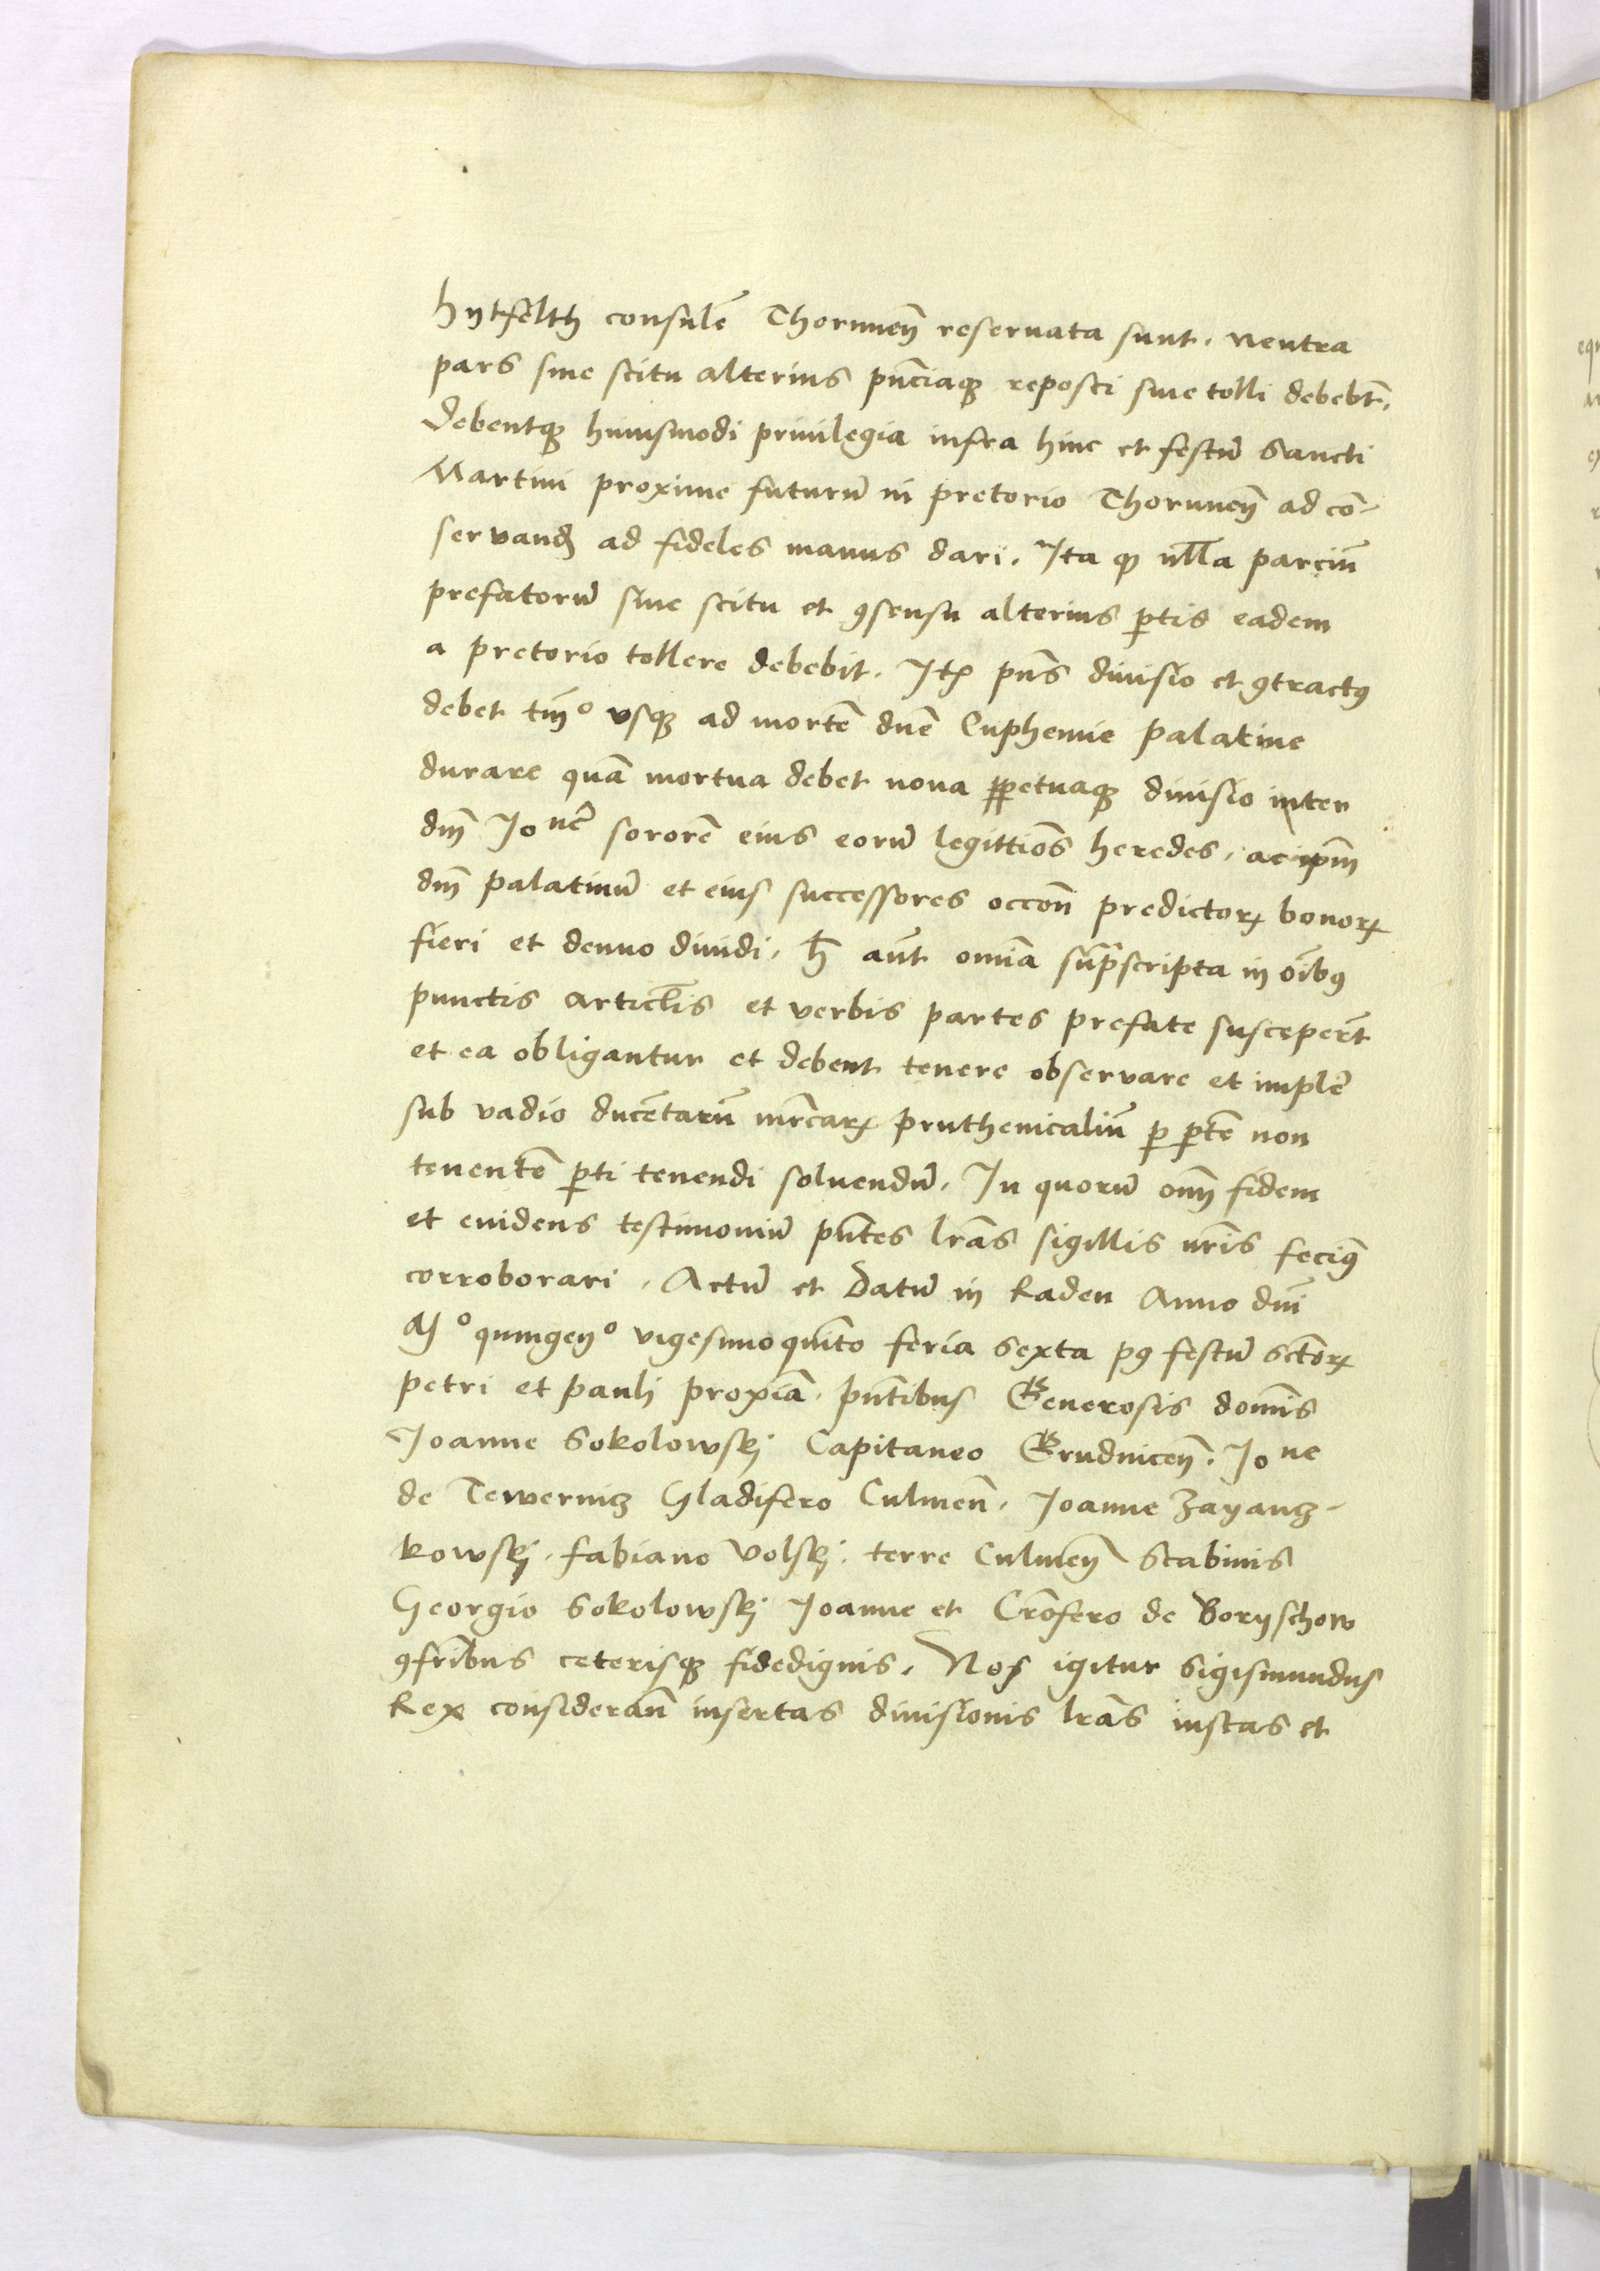 hytfelth consulē Thorunen̄ reseruata sunt. neutra
pars sine scitu alterius pn̄ciaqꝫ reposci siue tolli debebt̄.
debentqꝫ huiusmodi priuilegia infra hinc et festū Sancti
Martini proxime futurū in pretorio Thorunen̄ ad cō-
seruand ad fideles manus dari. Ita qꝫ nll̄a parciū
prefatorū sine scitu et ꝯsensu alterius ꝑtis eadem
a pretorio tollere debebit. Itꝫ pn̄s diuisio et ꝯtractꝯ
debet tm̄o vsqꝫ ad mortē dnē Euphemie palatine
durare quā mortua debet noua ꝑpetuaqꝫ diuisio inter
dn̄m Ionē sororē eius eorū legittīos heredes, ac ipm̄
dn̄m palatinū et eius successores occōn̄ predictoꝝ bonoꝝ
fieri et denuo diuidi. h̄ aūt omīa sup̄ascripta in oībꝯ
punctis articl̄is et verbis partes prefate suscepert̄
et ea obligantur et debent tenere obseruare et implē
sub vadio ducētarū mr̄caꝝ pruthenicaliū ꝑ ꝑtē non
tenentē ꝑti tenendi soluendū. In quorū oīm̄ fidem
et euidens testimoniū pn̄tes lr̄as sigillis nr̄is fecimꝯ
corroborari. Actū et Datū in Raden Anno dn̄i
Mo quingen̄o vigesimoquīto feria sexta pꝯ festū sctōꝝ
petri et pauli proxīa. pn̄tibus Generosis domīs
Joanne Sokolowskj Capitaneo Grudnicen̄. Ione
de Tewernicz Gladifero Culmen̄. Joanne Zayancz-
kowskj. fabiano Volskj. terre Culmen̄ Scabinis
Georgio Sokolowskj Joanne et Crōfero de Boryschow
ꝯfrībus ceterisqꝫ fidedignis. Nos igitur Sigismundus
Rex considerān̄ insertas diuisionis lr̄as iustas et